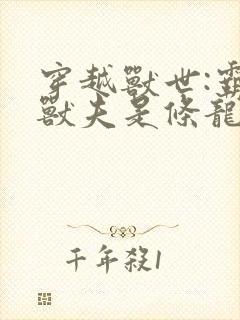 穿越獸世:霸
獸夫是條龍
千年殺1